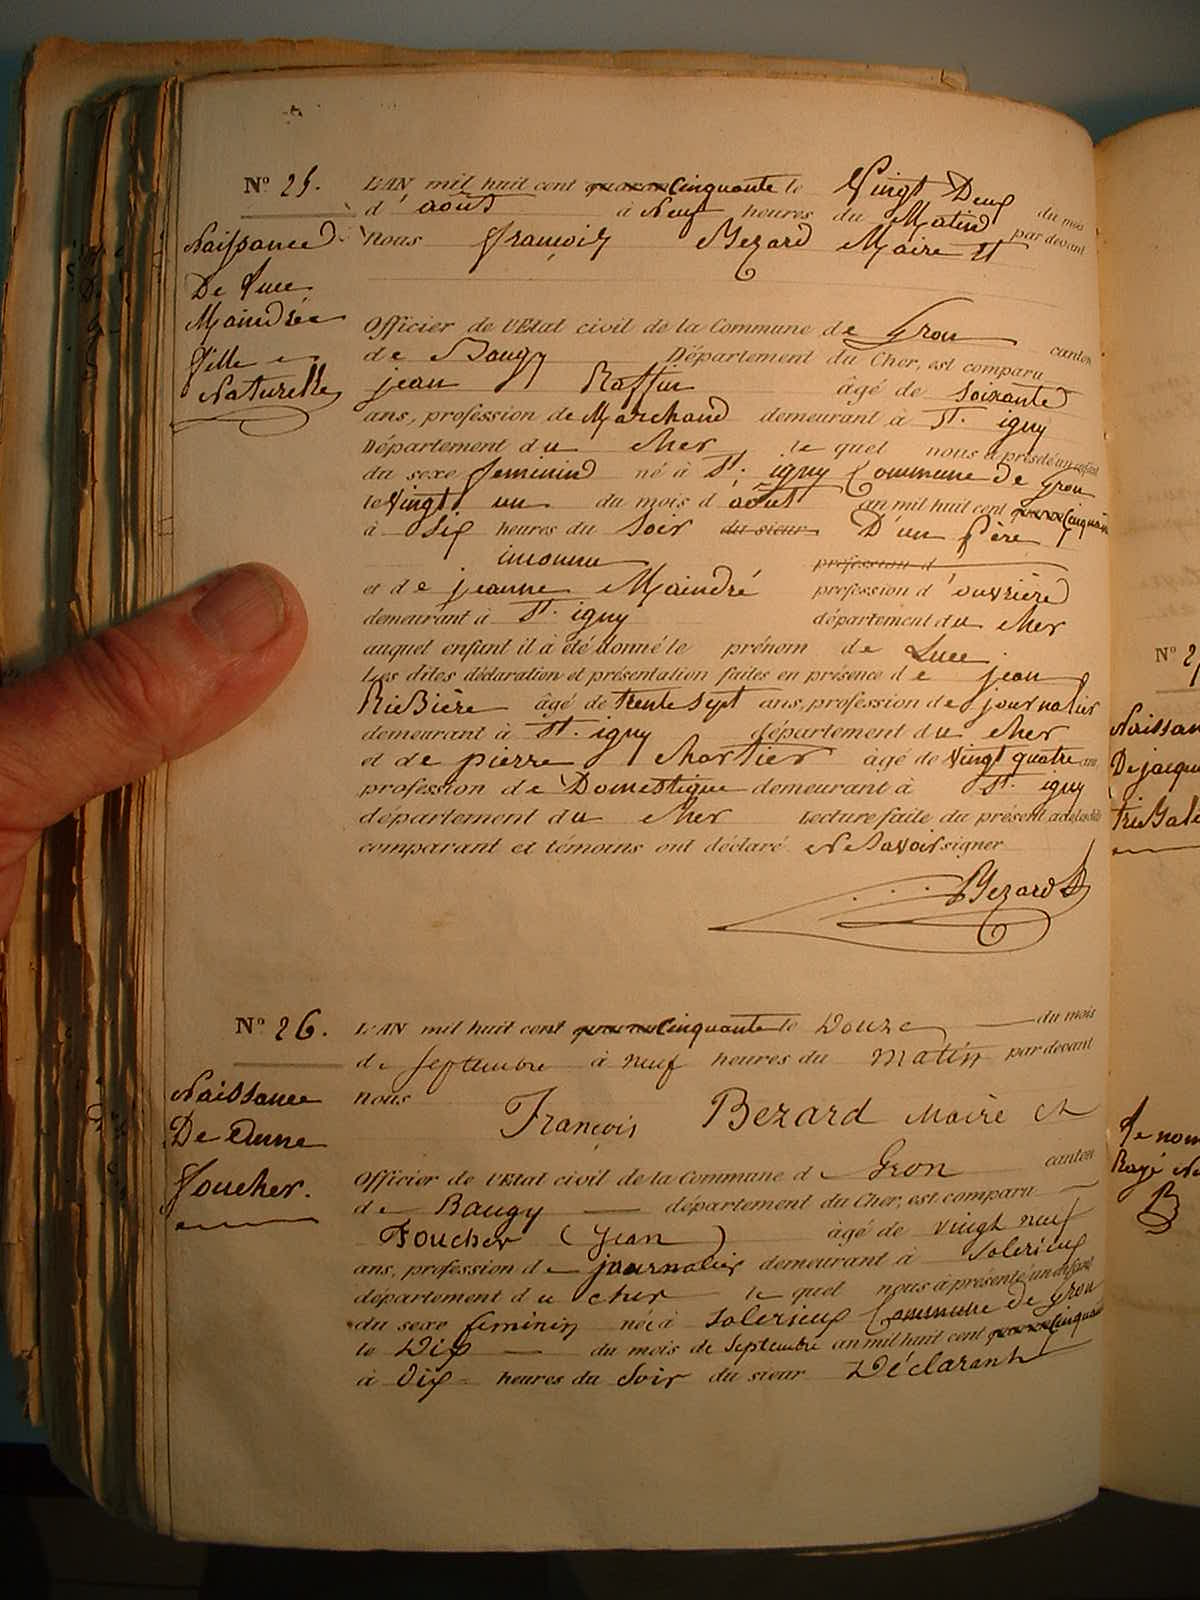 N° 25.
Naissance
De Luce
Maindrée
fille
Naturelle
L'AN mil huit cent cinquante le Vingt Deux du mois
d'août à Neuf heures du Matin par devant
Nous François Bezard Maire et
Officier de l'Etat civil de la Commune de Gron canton
de Baugy Département du Cher, est comparu
jean Raffin âgé de Soixante
ans, profession de Marchand demeurant à St. igny
Département du Cher le quel nous a présenté un enfant
du sexe feminind né à St. igny Commune de Gron
le Vingt un du mois d'août an mil huit cent cinquante
à Six heures du Soir du sieur D'un père
inconnu profession d
et de jeanne Maindré profession d'ouvrière
demeurant à St. igny département du Cher
auquel enfant il a été donné le prénom de Luce
Les dites déclaration et présentation faites en présence de jean
RieBière âgé de trente Sept ans, profession de journalier
demeurant à St. igny département du Cher
et de pierre Chartier âgé de Vingt quatre ans,
profession de Domestique demeurant à St. igny
département du Cher Lecture faite du présent acte les dits
comparant et témoins ont déclaré Ne Savoir signer
Bezard
N° 26.
Naissance
De Anne
Foucher.
L'AN mil huit cent cinquante le Douze du mois
de Septembre à neuf heures du matin par devant
nous François Bezard Maire et
Officier de l'Etat civil de la Commune de Gron canton
de Baugy département du Cher, est comparu
Foucher (Jean) âgé de vingt neuf
ans, profession de journalier demeurant à Solerieux
département du cher le quel nous a présenté un enfant
du sexe feminin né à Solerieux Commune de Gron
le Dix du mois de Septembre an mil huit cent cinquante
à Dix heures du Soir du sieur Déclarant
N° 2
Naissan
De jacqu